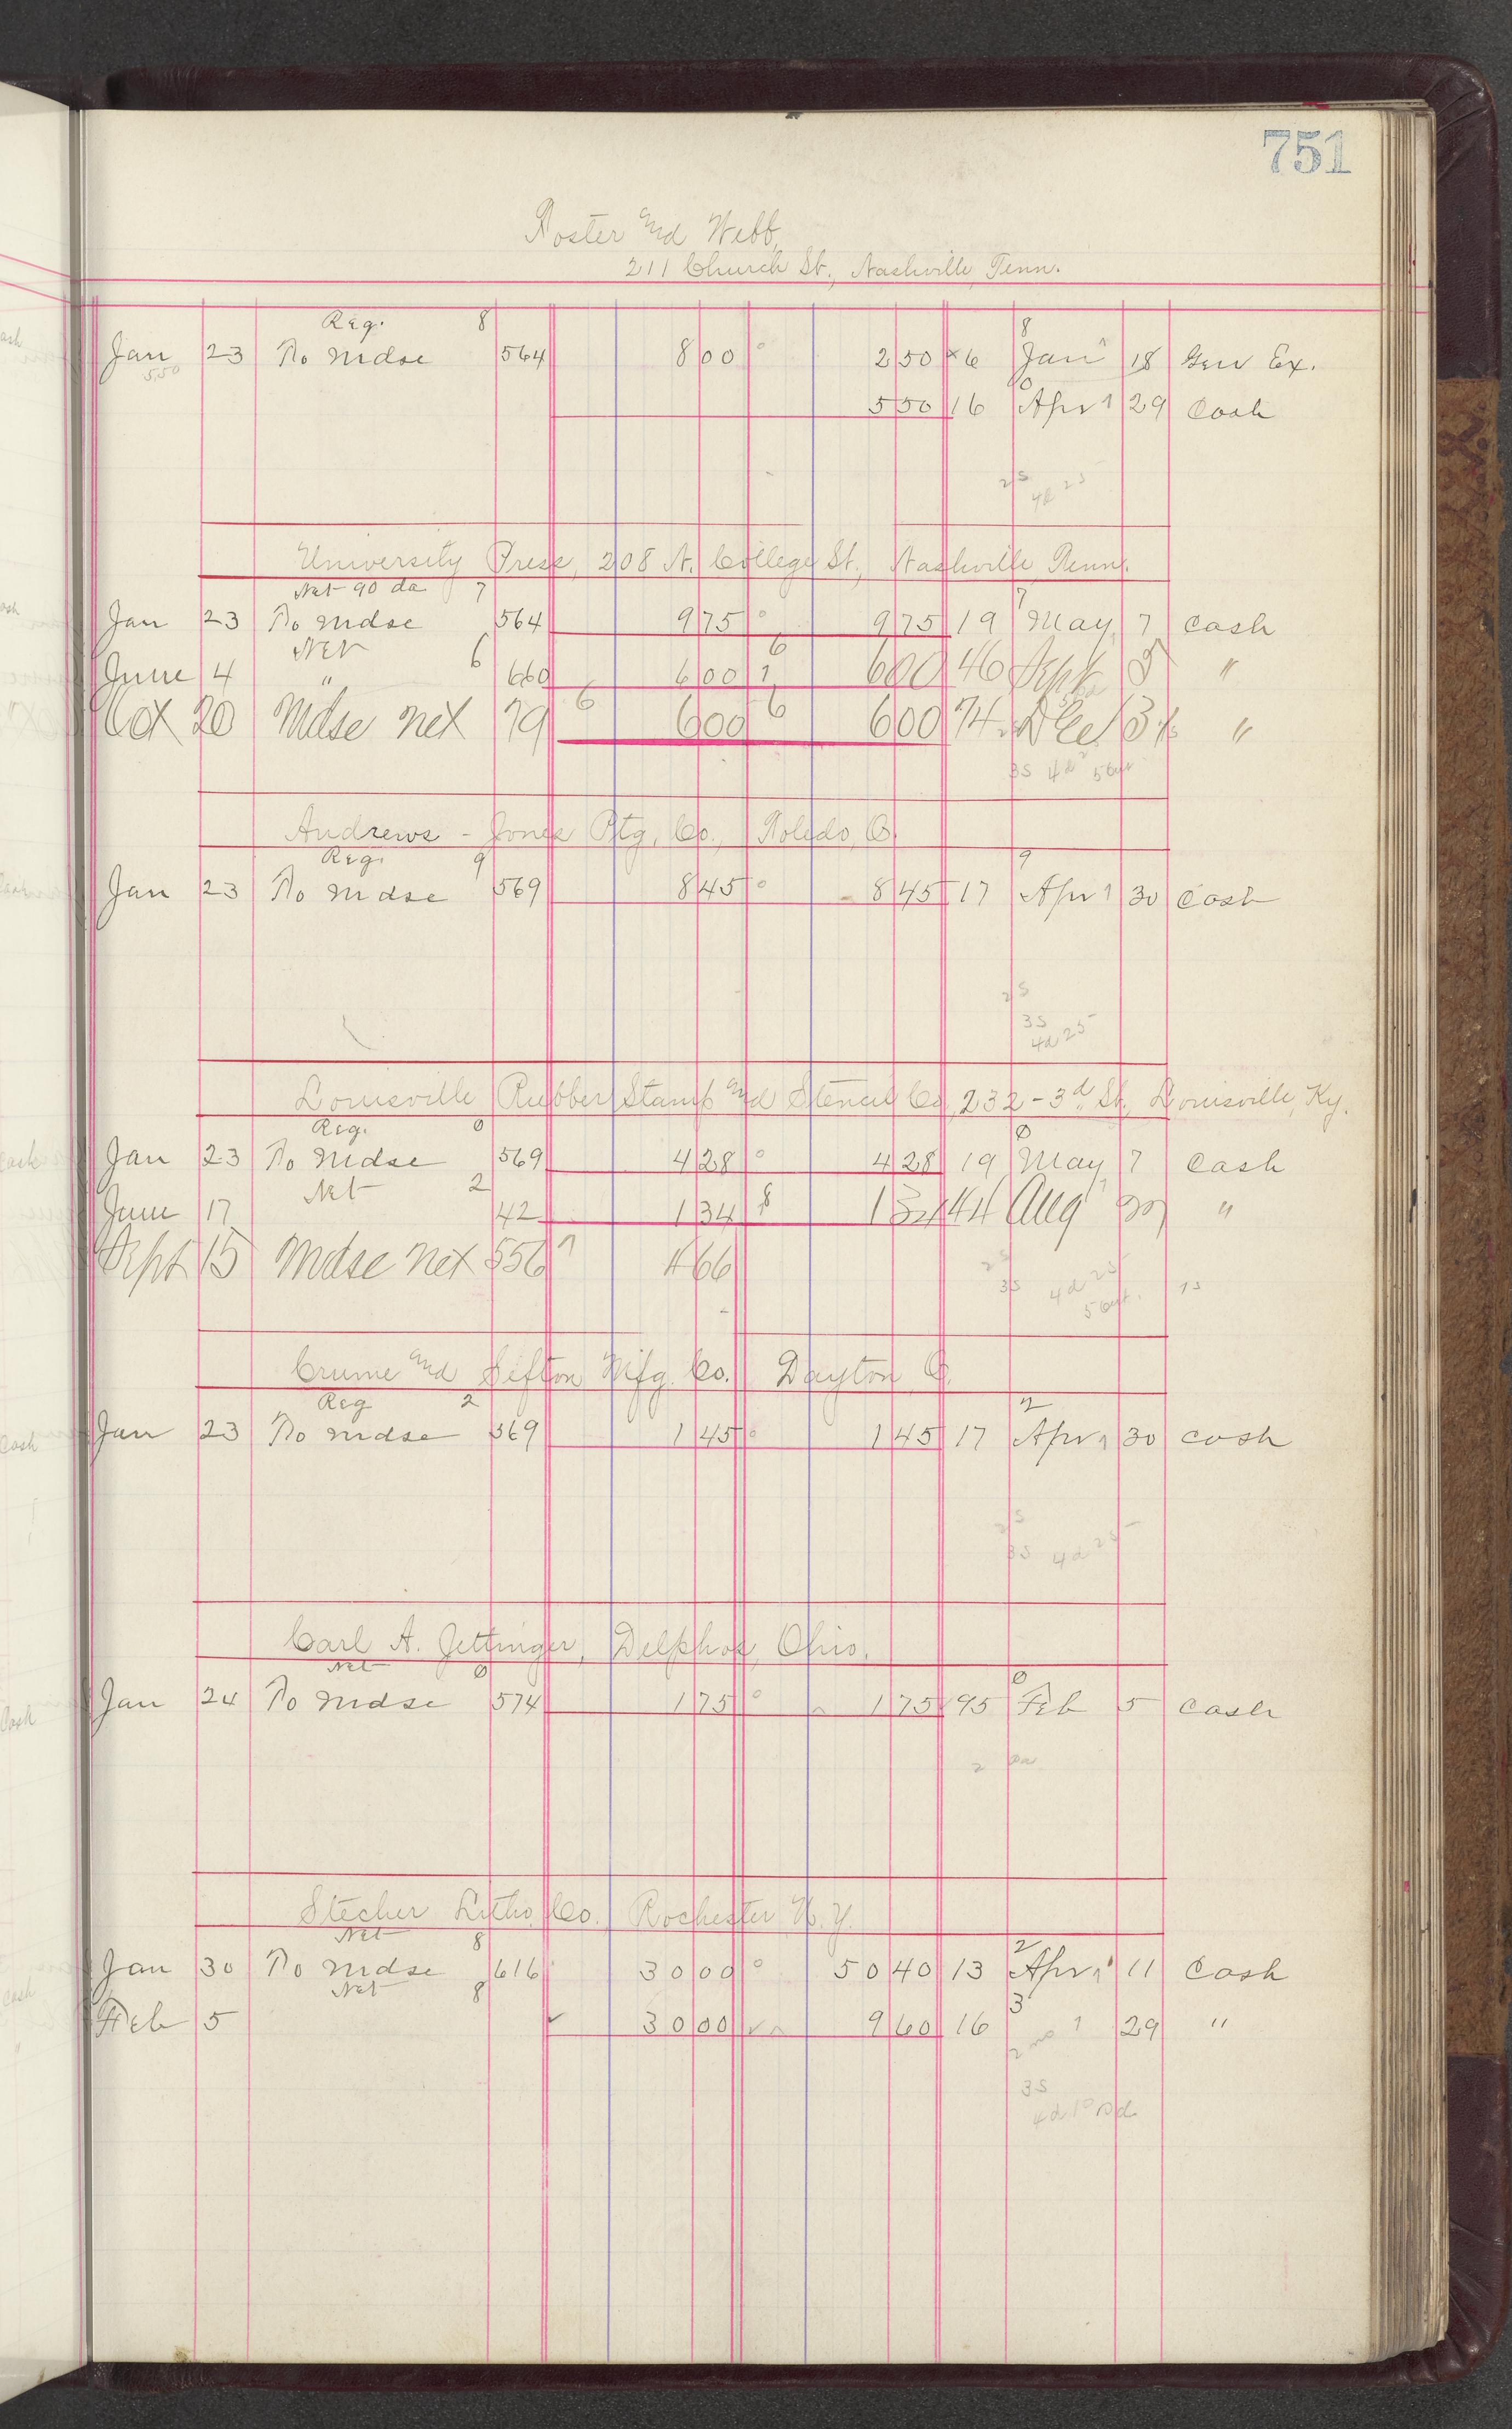 751
Foster and Webb,
211 Church St., Nashville, Tenn.
Reg. 8 8
Jan 23 To Mdse 564 8 00 2 50 6 Jan 18 Gen Ex.
550
5 50 16 Apr 29 Cash
2s
4d 25
University Press, 208 N. College St., Nashville Tenn.
Net 90 da 7 7
Jan 23 To Mdse 564 9 75 9 75 19 May 7 Cash
Net 6 6
June 4 " 660 6 00 6 00 46 Sept "
Oct 20 Mdse net 79 6 6 00 6 6 00 74 Dec 31 "
3s 4d
Andrews-Jones Ptg. Co., Toledo, O.
Reg. 9 9
Jan 23 To Mdse 569 8 45 8 45 17 Apr 30 Cash
2s
3s
4d 25
Louisville Rubber Stamp and Stencil Co, 232-3d St., Louisville, Ky.
Reg. 0 0
Jan 23 To Mdse 569 4 28 4 28 19 May 7 Cash
Net 2 8
June 17 42 1 34 1 34 44 Aug "
Sept 15 Mdse net 556 4 66
2s
3s 4d 25 1s
Crume and Sefton Mfg. Co. Dayton O.
Reg 2 2
Jan 23 To Mdse 569 1 45 1 45 17 Apr 30 Cash
2s
3s 4d 25
Carl A. Jettinger, Delphos, Ohio.
Net 0 0
Jan 24 To Mdse 574 1 75 1 75 95 Feb 5 Cash
2
Stecher Litho. Co. Rochester N.Y.
Net 8 2
Jan 30 To Mdse 616 30 00 50 40 13 Apr 11 Cash
Net 8 3
Feb 5 30 00 9 60 16 29 "
3s
4d